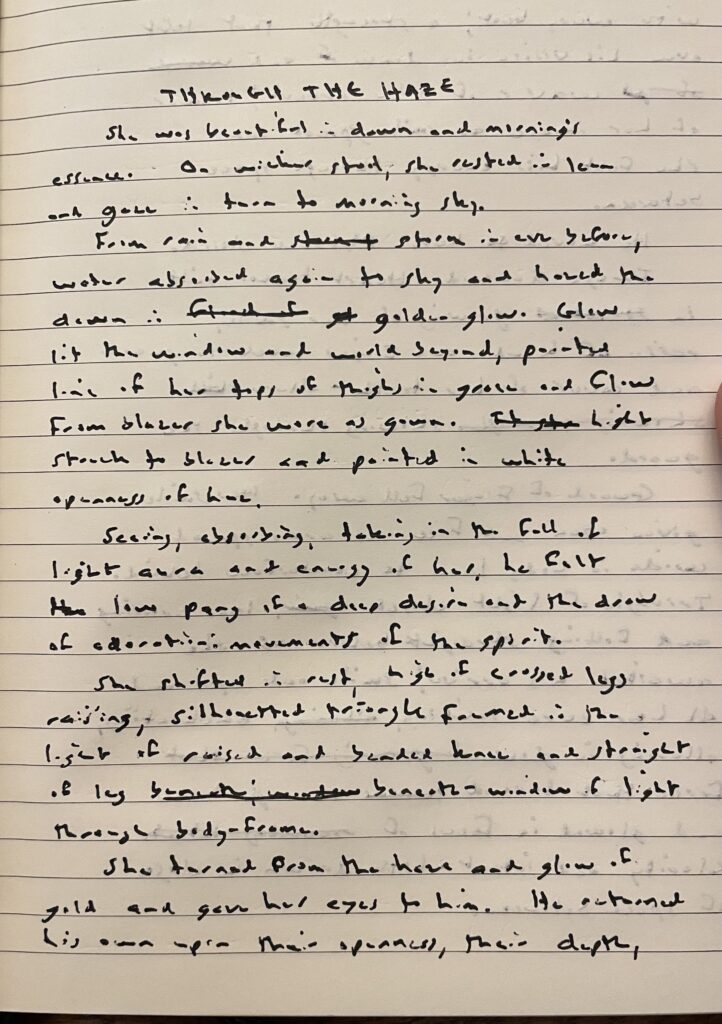 THROUGH THE HAZE
She was beautiful in dawn and morning's
essence. On wicker stool, she rested in lean
and gaze in turn to morning sky.
From rain and storm in eve before,
water absorbed again to sky and hazed the
dawn in golden glow. Glow
lit the window and world beyond, painted
line of her tops of thighs in graze and flow
from blazer she wore as gown. Light
struck to blazer and painted in white
openness of hue.
Seeing, absorbing, taking in the full of
light aura and energy of her, he felt
love pang of a deep desire and the draw
of adoration: movements of the spirit.
She shifted in rest, high of crossed legs
raising, silhouetted triangle formed in the
light of raised and bended knee and straight
of leg beneath - window of light
through body-frame.
She turned from the haze and glow of
gold and gave her eyes to him. He returned
his own upon their openness, their depth,